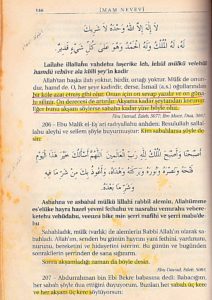 136
İMAM NEVEVÎ
لَا إِلٰهَ إِلَّا اللّٰهُ وَحْدَهُ لَا شَرِيكَ
لَهُ، لَهُ الْمُلْكُ وَلَهُ الْحَمْدُ وَهُوَ عَلَى كُلِّ شَيْءٍ قَدِيرٌ
Lailahe illallahu vahdehu laşerike leh, lehül mülkü velehül
hamdü vehüve ala külli şey'in kadir
Allah'tan başka ilah yoktur, birdir, ortağı yoktur. Mülk O'nundur,
hamd O'nadır. O her şeye kadirdir, derse, İsmail (a.s.) oğullarından
bir köle azat etmiş gibi olur. Onun için on sevap yazılır ve on güna-
hı silinir. On derecesi de artırılır. Akşama kadar şeytandan korunur.
Eğer bunu akşam söylerse sabaha kadar yine böyle olur.
Ebu Davud, Edeb, 5077; İbn Mace, Dua, 3867.
206 - Ebu Malik el-Eş'ari radıyallahu anhden: Resulullah sallal-
lahu aleyhi ve sellem şöyle buyurmuştur: Kim sabahlarsa şöyle de-
sin:
Asbahna ve asbahal mülkü lillahi rabbil alemin, Allahümme
es'elüke hayra hazel yevmi
ketehu vehüdahu, veeuzu bike min şerri mafihi ve şerri maba'de-
hu
Sabahladık, mülk (varlık) de alemlerin Rabbi Allah'ın olarak sabah-
ladı. Allah'ım, senden bu günün hayrını ona fethini, yardımını,
nurunu, bereketini ve hidayetini isterim. Bu günün ve bugünden
sonrakilerin şerrinden de sana sığınırım.
Sonra akşamladığı zaman da böyle desin.
Ebu Davud, Edeb, 5084.
207 - Abdurrahman bin Ebi Bekre babasına dedi: Babacığım,
her sabah senden şöyle dediğini duyuyorum. Bazları sen sabah üç kere
ve her akşam üç kere söylüyorsun: